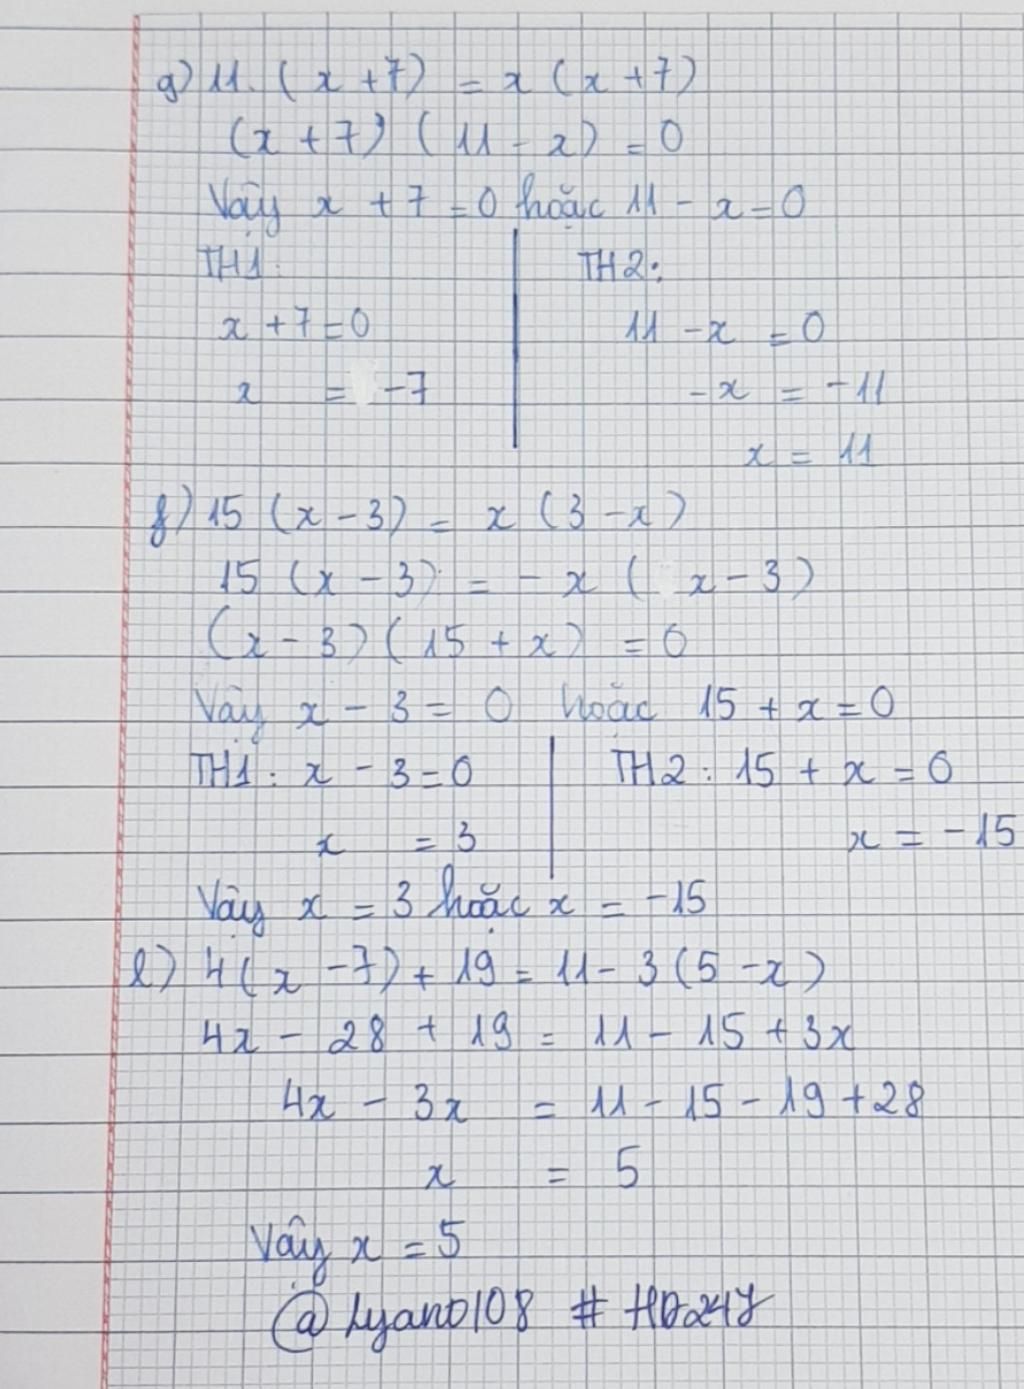 g) 11. (x + 7) = x (x + 7)
(x + 7) (11 - x) = 0
Vậy x + 7 = 0 hoặc 11 - x = 0
TH1:
x + 7 = 0
x = -7
TH2:
11 - x = 0
-x = -11
x = 11
f) 15 (x - 3) = x (3 - x)
15 (x - 3) = - x ( x - 3)
(x - 3) (15 + x) = 0
Vậy x - 3 = 0 hoặc 15 + x = 0
TH1: x - 3 = 0
x = 3
TH2: 15 + x = 0
x = -15
Vậy x = 3 hoặc x = -15
l) 4(x - 7) + 19 = 11 - 3(5 - x)
4x - 28 + 19 = 11 - 15 + 3x
4x - 3x = 11 - 15 - 19 + 28
x = 5
Vậy x = 5